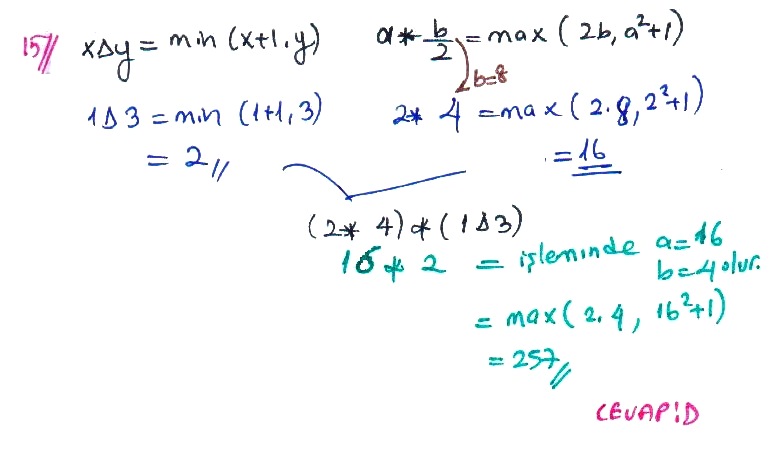 15// x∆y = min (x+1, y)   a * b/2 = max ( 2b, a²+1)
b=8
1∆3 = min (1+1, 3)   2* 4 = max ( 2.8, 2²+1)
= 2//   = 16
(2* 4) * (1∆3)
16 * 2 = işleminde a=16
b=4 olur.
= max( 2.4, 16²+1)
= 257//
CEVAP:D